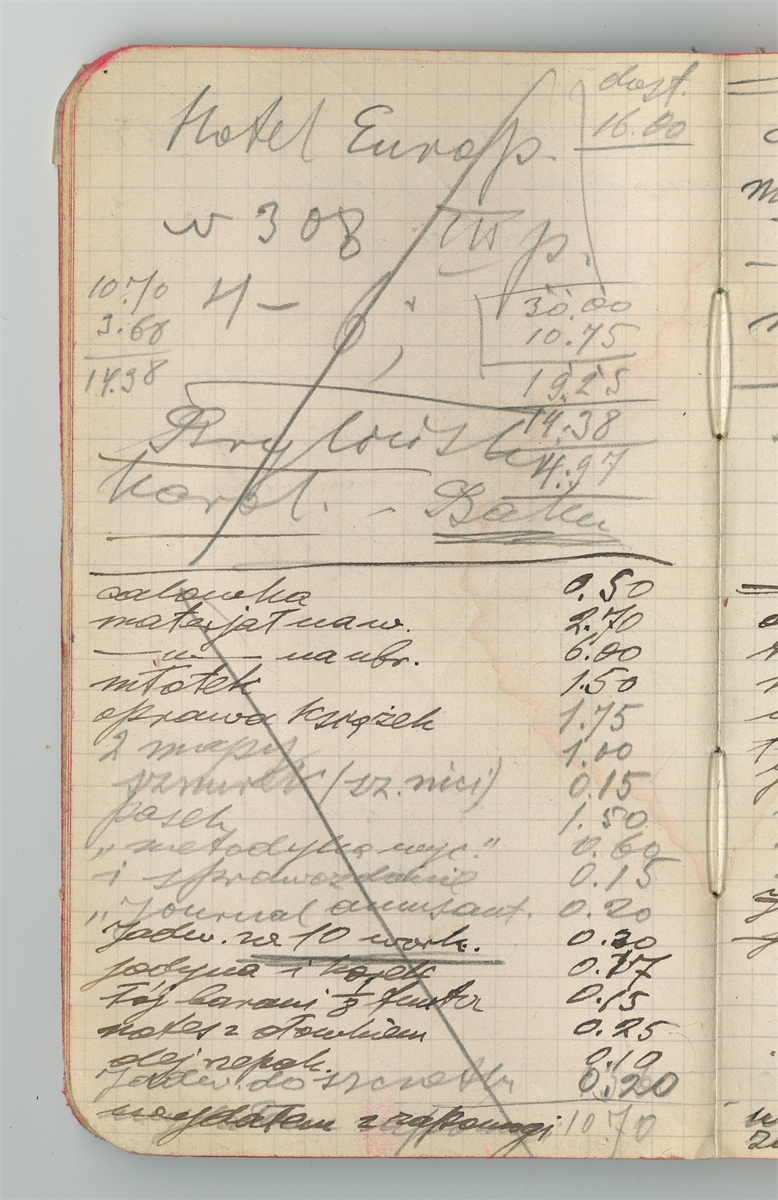 dost.
16.00
Hotel Europ.
w 308 III p.
10.70
3.68
14.38
4 –
30.00
10.75
19.25
14.38
4.97
Karol. – Baku
0.50
materjał na w.
2.70
—"— na ubr.
6.00
młotek
1.50
oprawa książek
1.75
2 mapy
1.00
sznurek (sz. nici)
0.15
pasek
1.50
„metodyka wyc."
0.60
i sprawozdanie
0.15
„Journal amusant.
0.20
Jadw. za 10 work.
0.20
jodyna i korek
0.17
łój barani 1/8 funta
0.15
notes z ołówkiem
0.25
olej rzepak.
0.10
Jadw. do szczotki
0.20
wydałem z zapomogi
10.70